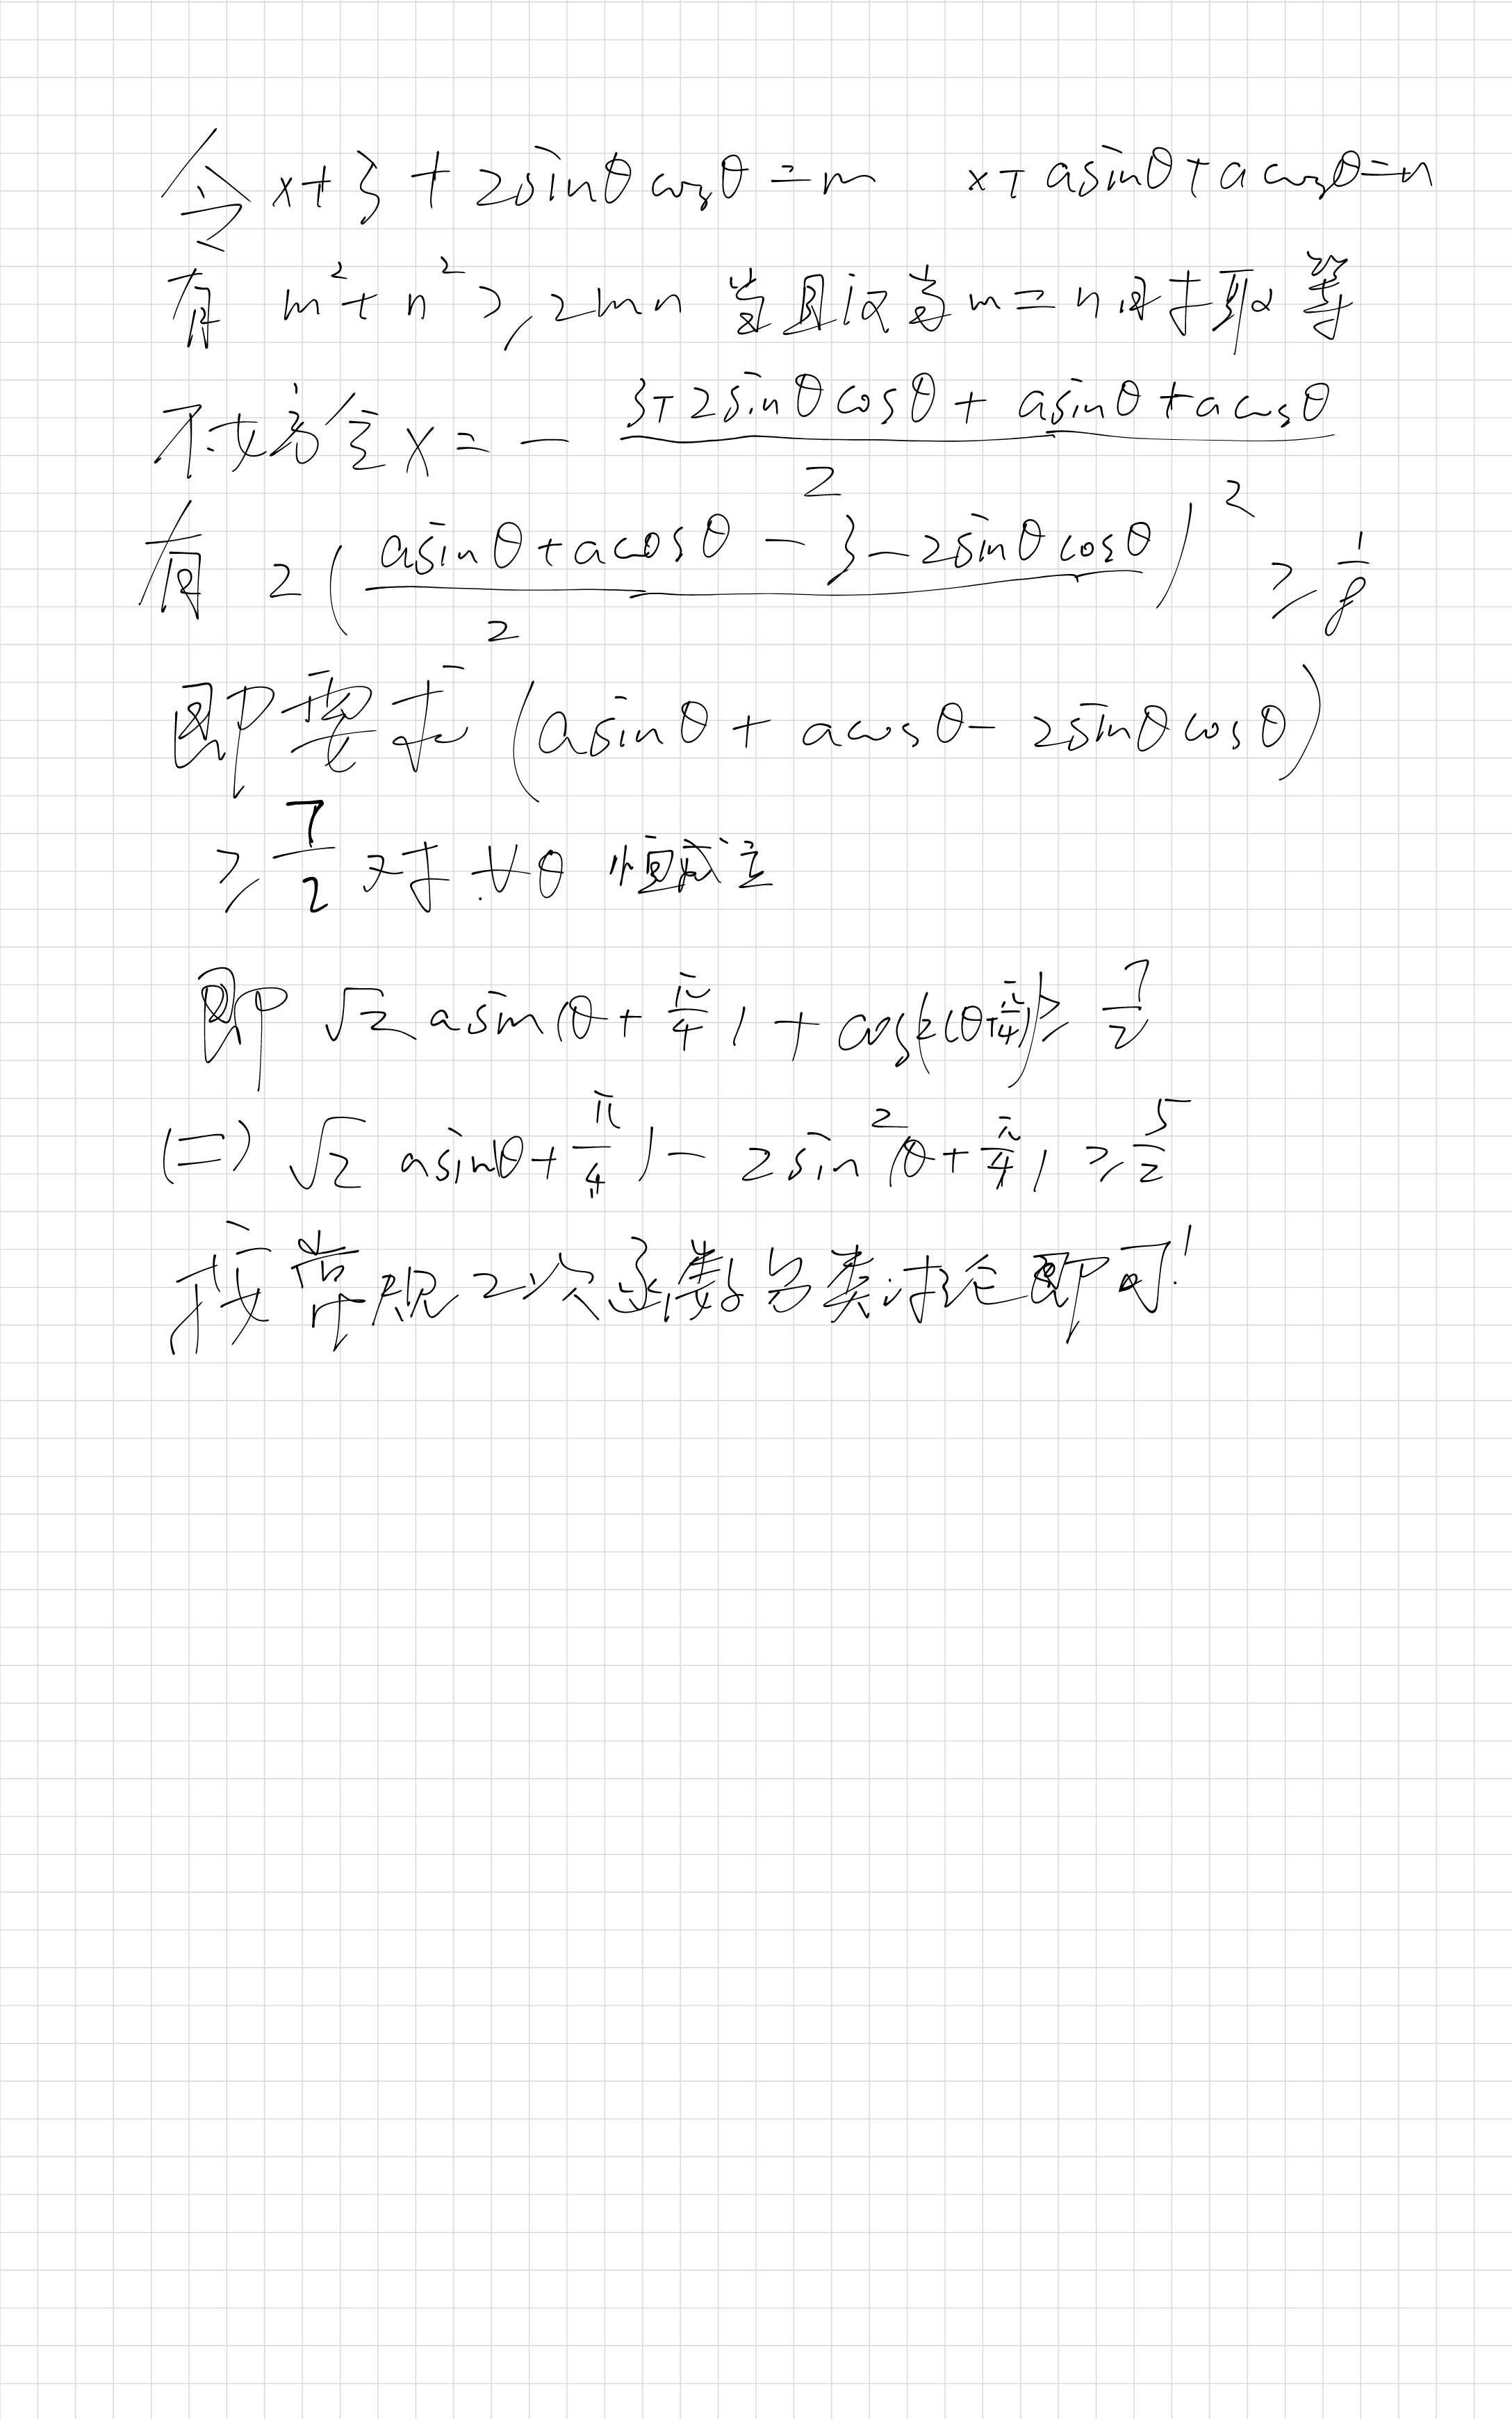 令 x+3+2sinθcosθ=m x+asinθ+acosθ=n
有 m²+n²≥2mn 当且仅当m=n时取等
不妨令x=-(3+2sinθcosθ+asinθ+acosθ)/2
有 2((asinθ+acosθ-3-2sinθcosθ)/2)²≥1/8
即要求(asinθ+acosθ-2sinθcosθ)
≥7/2对∀θ恒成立
即√2asin(θ+π/4)+cos(2(θ+π/4))≥7/2
(=)√2asin(θ+π/4)-2sin²(θ+π/4)≥5/2
按常规2次函数分类讨论即可!